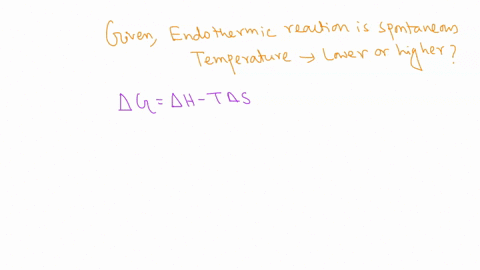 Given, Endothermic reaction is spontaneous
Temperature → Lower or higher?
ΔG = ΔH - TΔS